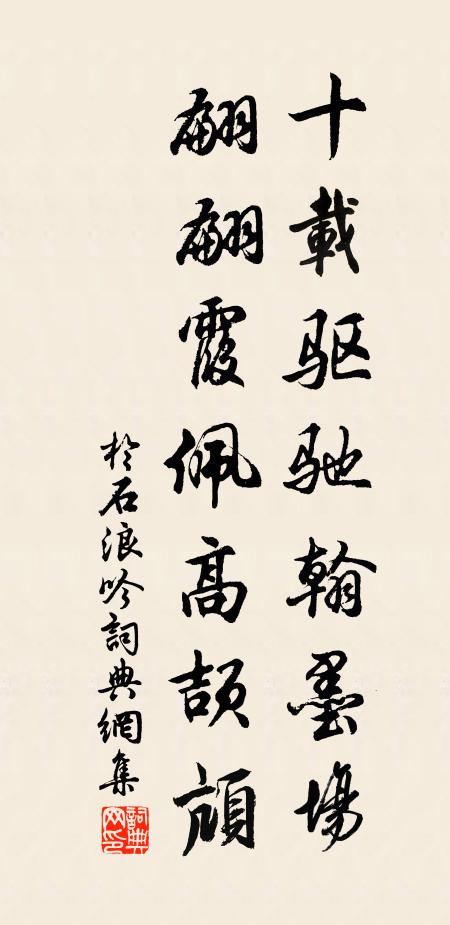 十載驱驰翰墨場
翩翩霞佩高頡頏
於石浪吟詞典網集
詞典網印